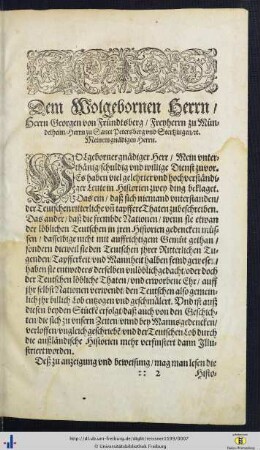 Dem Wolgebornen Herrn /
Herrn Georgen von Fründtsberg / Freyherrn zu Mün-
delheim / Herrn zu Sanct Petersberg vnd Stertzingen / ꝛc.
Meinem gnädigen Herrn.
WOlgeborner gnädiger Herr / Mein vnter-
thänig schuldig vnd willige Dienst zuvor.
Es haben viel gelehrter vnd hochverständi-
ger Leute in Historien zwey ding beklaget.
Das ein / daß sich niemand vnterstanden /
der Teutschen ritterliche vñ tapffere Thaten zubeschreiben.
Das ander / daß die frembde Nationen / wenn sie etwan
der löblichen Teutschen in jren Historien gedencken müs-
sen / dasselbige nicht mit auffrichtigem Gemüt gethan /
sondern dieweil sie den Teutschen jhrer Ritterlichen Tu-
genden / Tapfferkeit vnd Mannheit halben feind gewesen /
haben sie entweders derselben vnlöblich gedacht / oder doch
der Teutschen löbliche Thaten / vnd erworbene Ehr / auff
jhr selbst Nationen verwendt / den Teutschen also gemein-
lich jhr billich Lob entzogen vnd geschmälert. Vnd ist auß
diesen beyden Stücken erfolgt / daß auch von den Geschich-
ten die sich zu vnsern Zeiten vnnd bey Mannsgedencken /
verloffen / vngleich geschriebẽ vnd der Teutschen Lob durch
die außländische Historien mehr verfinstert dann Illu-
striert worden.
Deß zu anzeigung vnd beweisung / mag man lesen die
:: 2 Histo-
http://dl.ub.uni-freiburg.de/diglit/reissner1599/0007
© Universitätsbibliothek Freiburg